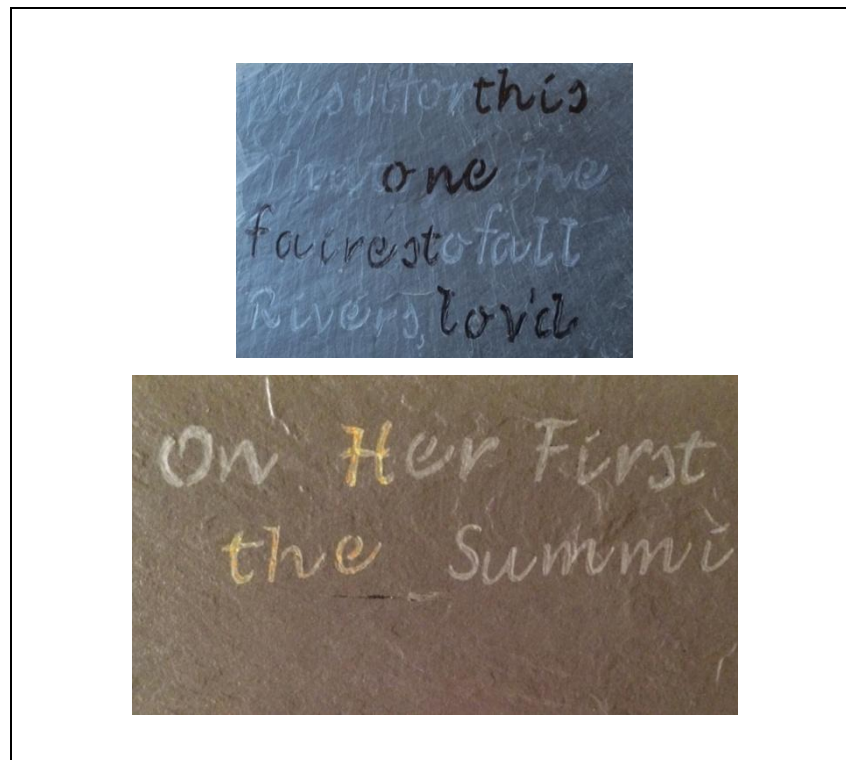 Was it for this
That one the
fairest of all
Rivers, lov'd
On Her First
the Summi